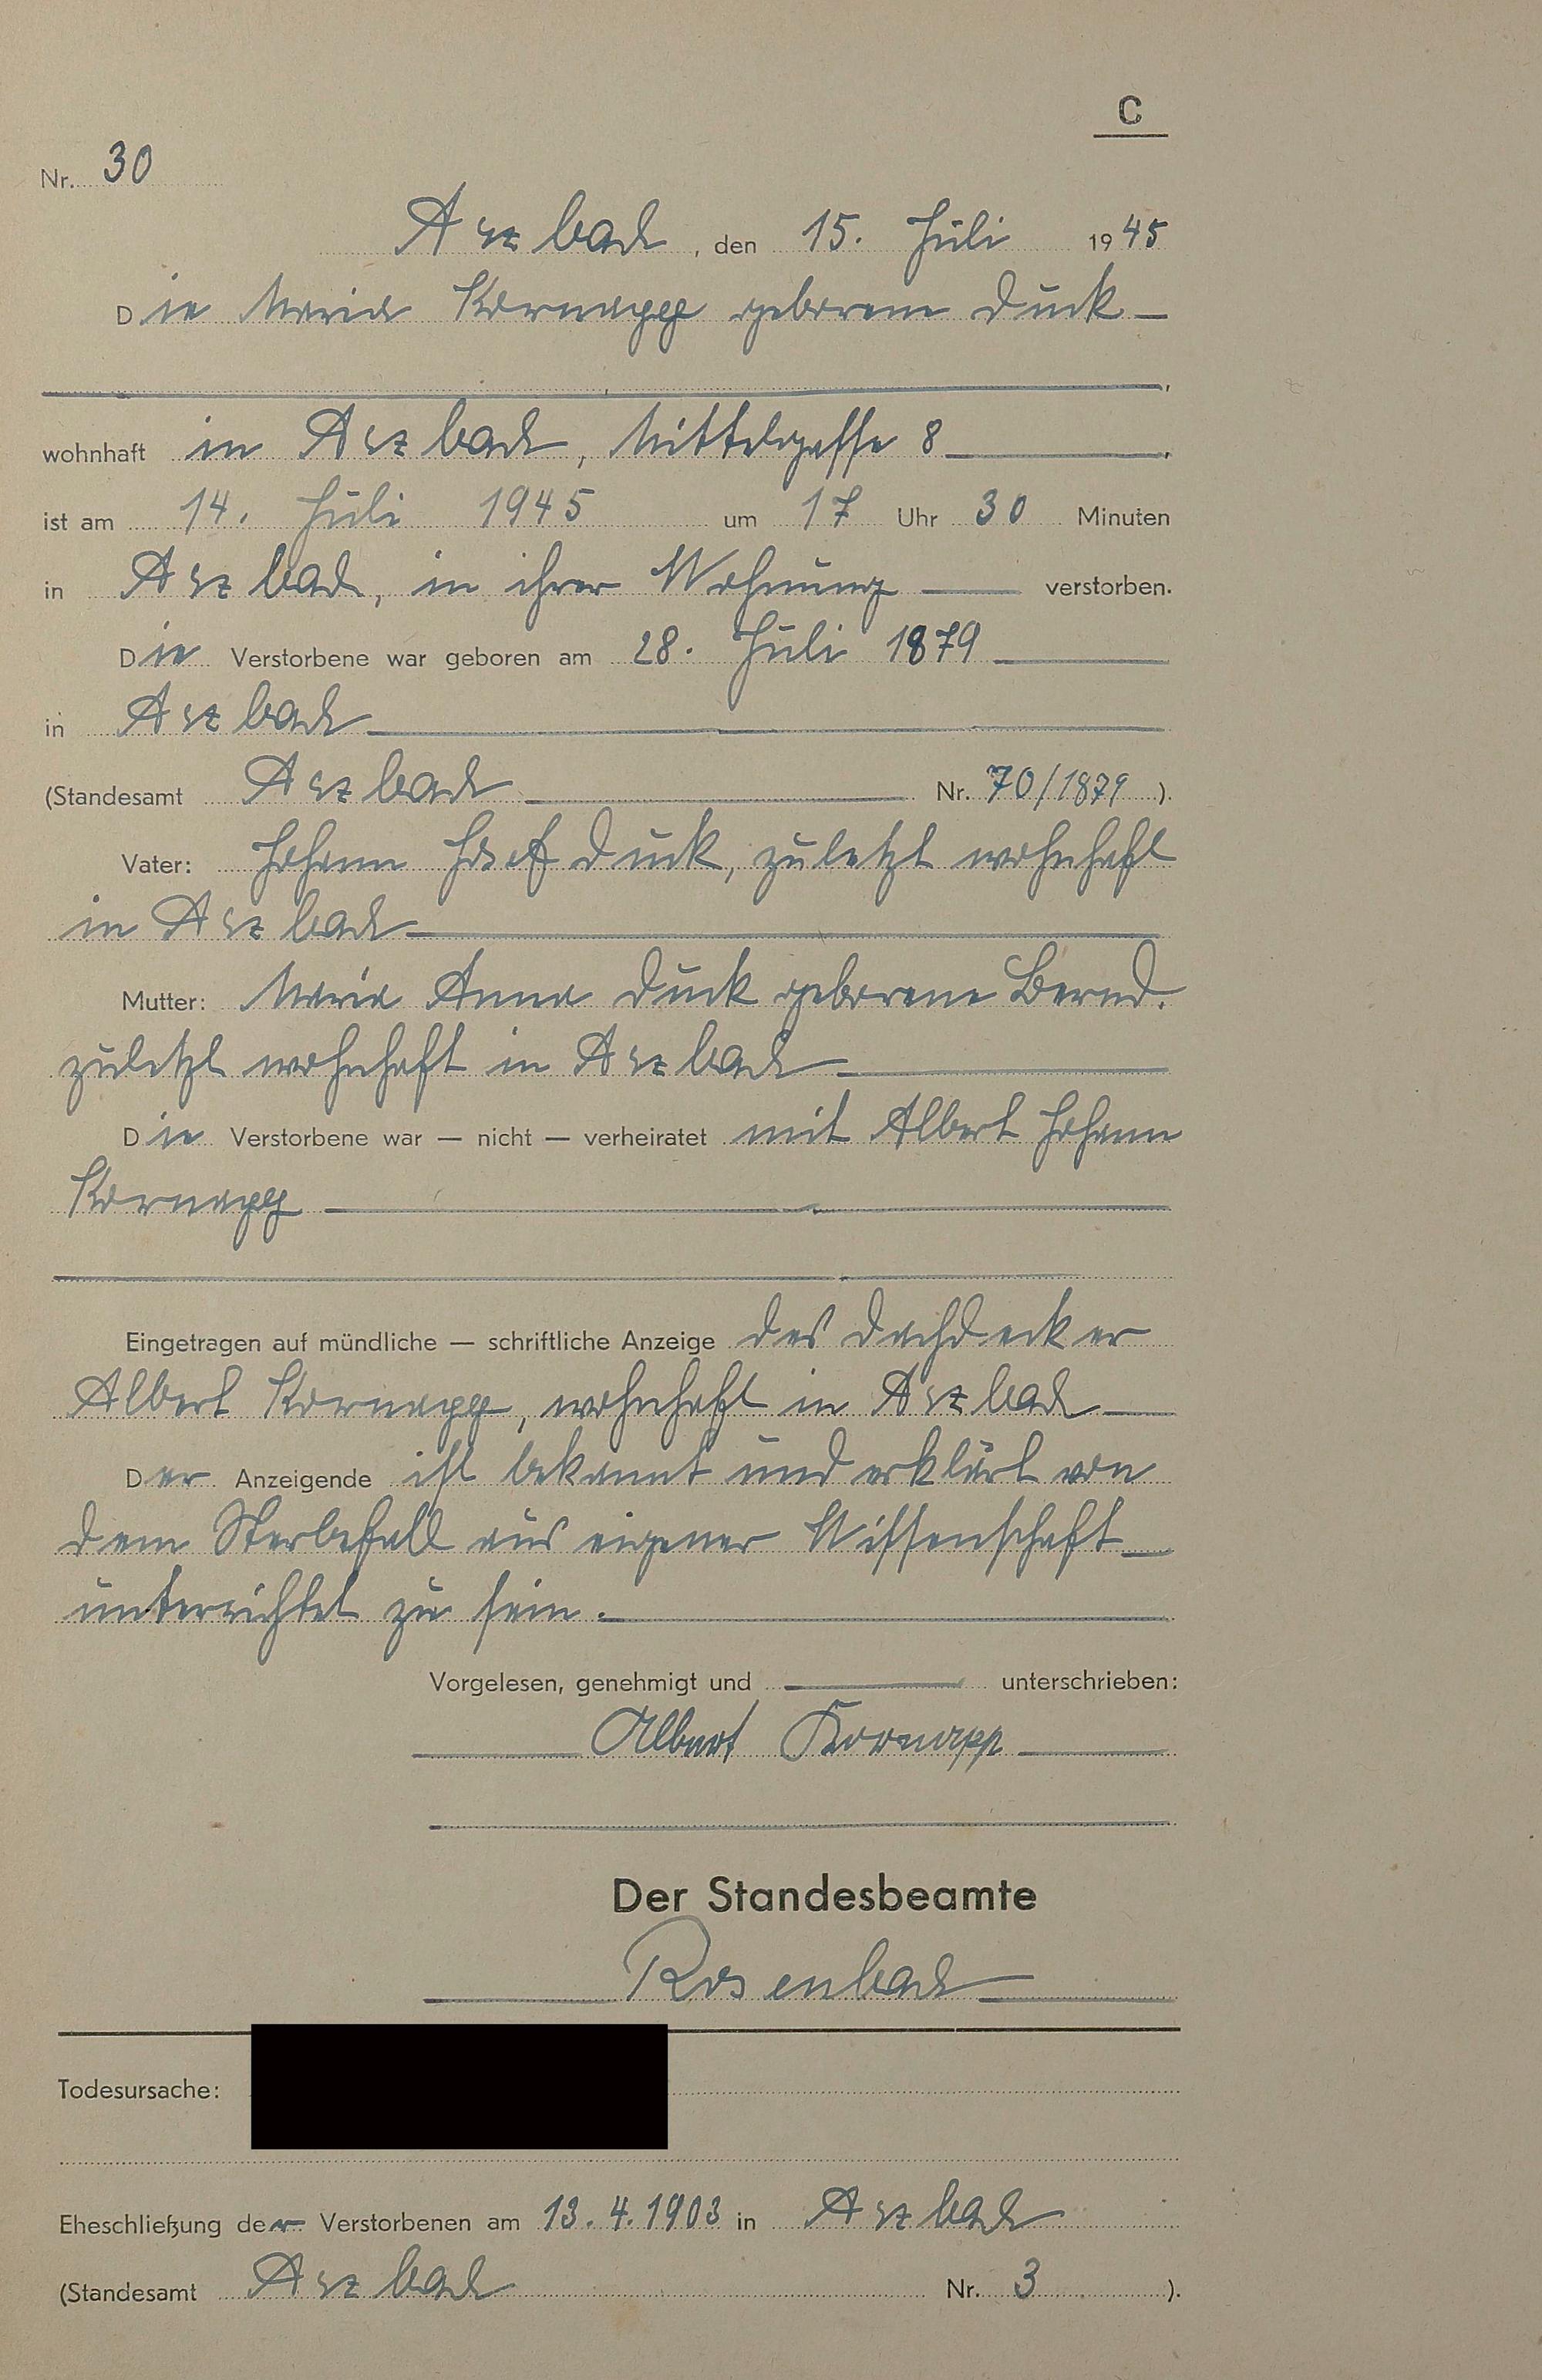 C
Nr. 30
Arzbach, den 15. Juli 1945
Die Maria Kornapp geborene Duck
wohnhaft in Arzbach, Mittelgasse 8
ist am 14. Juli 1945 um 17 Uhr 30 Minuten
in Arzbach, in ihrer Wohnung verstorben.
Die Verstorbene war geboren am 28. Juli 1879
in Arzbach
(Standesamt Arzbach Nr. 70/1879).
Vater: Johann Josef Duck, zuletzt wohnhaft
in Arzbach
Mutter: Maria Anna Duck geborene Bernd.
zuletzt wohnhaft in Arzbach
Die Verstorbene war — nicht — verheiratet mit Albert Johann
Kornapp
Eingetragen auf mündliche — schriftliche Anzeige des Dachdecker
Albert Kornapp, wohnhaft in Arzbach
Der Anzeigende ist bekannt und erklärt von
dem Sterbefall aus eigener Wissenschaft
unterrichtet zu sein.
Vorgelesen, genehmigt und unterschrieben:
Albert Kornapp
Der Standesbeamte
Rosenbach
Todesursache:
Eheschließung der Verstorbenen am 13.4.1903 in Arzbach
(Standesamt Arzbach Nr. 3).